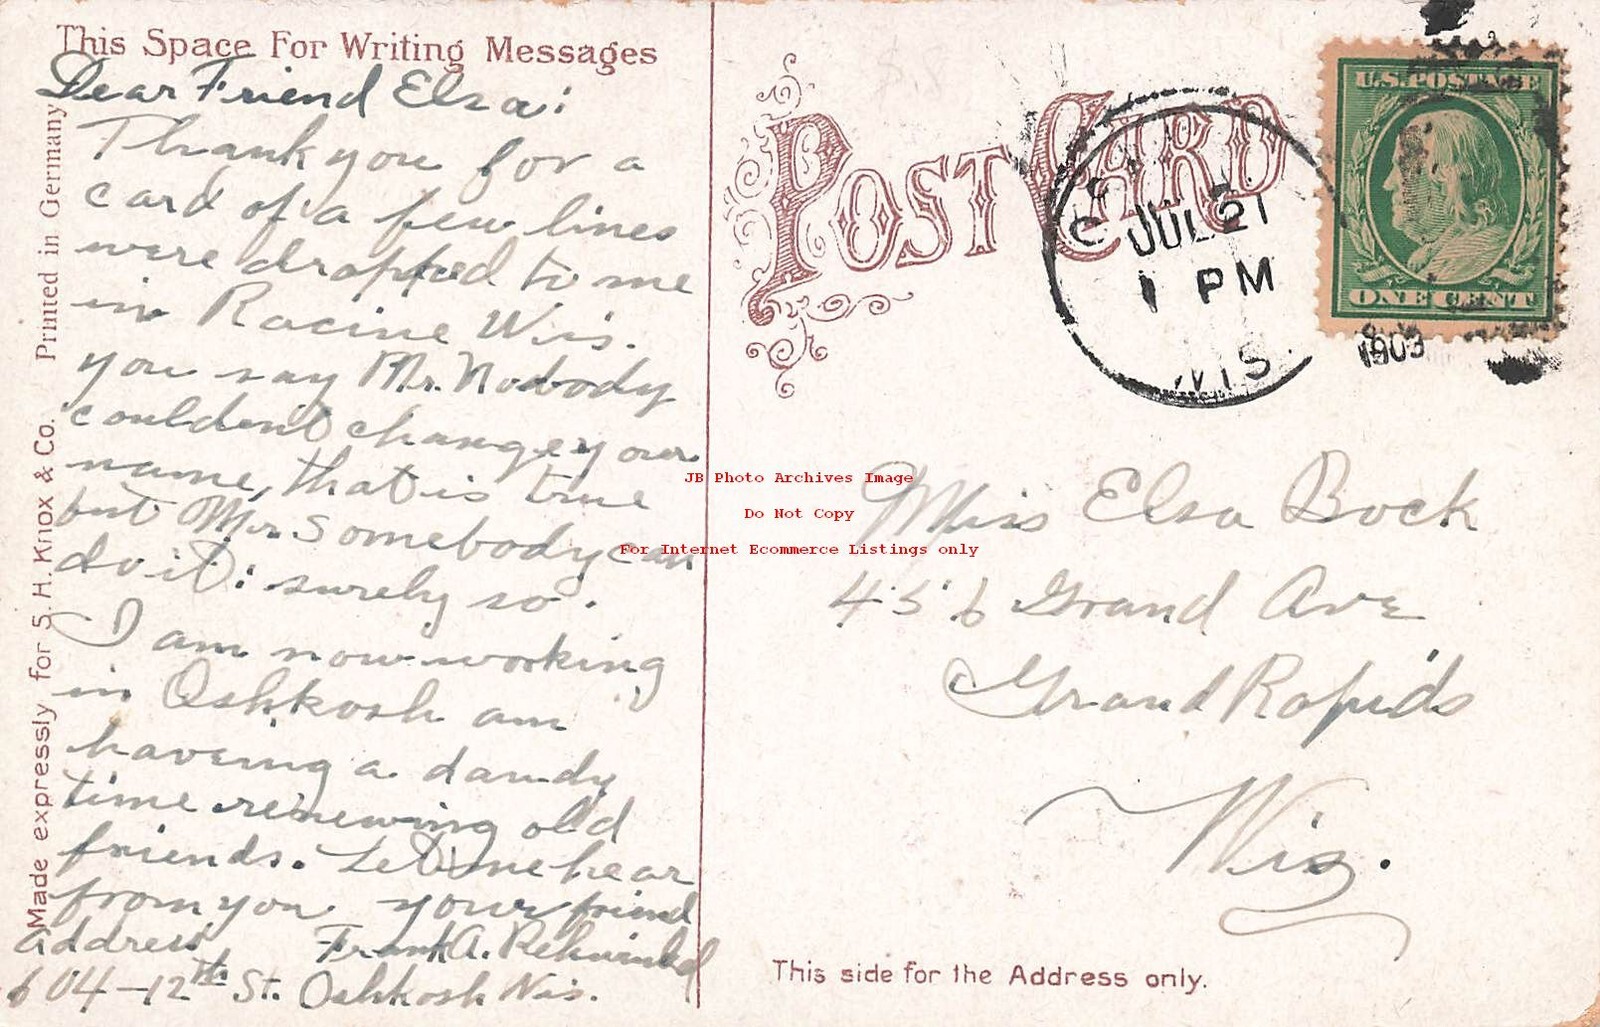 This Space For Writing Messages
Dear Friend Elsa:
Thank you for a
card of a few lines
were dropped to me
in Racine Wis.
you say Mr. Nobody
couldent change your
name, that is true
but Mr. Somebody can
do it: surely so.
I am now working
in Oshkosh am
haveing a dandy
time renewing old
friends. Let me hear
from you your friend
address Frank A.
604-12th St. Oshkosh Wis.
Made expressly for S. H. Knox & Co. Printed in Germany
POST CARD
JUL 21
1 PM
WIS.
U.S. POSTAGE
ONE CENT
JB Photo Archives Image
Do Not Copy
For Internet Ecommerce Listings only
Miss Elsa Bock
456 Grand Ave
Grand Rapids
Wis.
This side for the Address only.